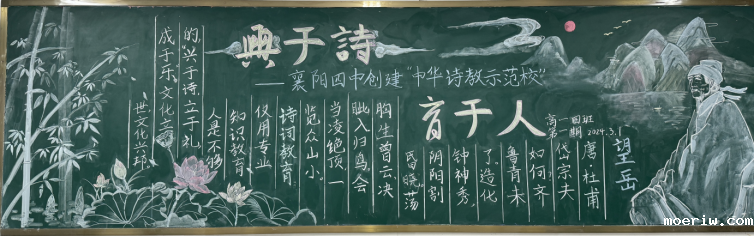 興于詩
——襄阳四中创建“中华诗教示范校”
育于人
高一四班
第一期 2024.3.1
望岳
唐 杜甫
岱宗夫
如何齐
鲁青未
了。造化
钟神秀，
阴阳割
昏晓。荡
胸生曾云，决
眦入归鸟。会
当凌绝顶，一
览众山小。
诗词教育
仅用专业
知识教育
人是不够
的，“兴于诗，立于礼，
成于乐”，文化
世文化兴邦。
moeriw.com